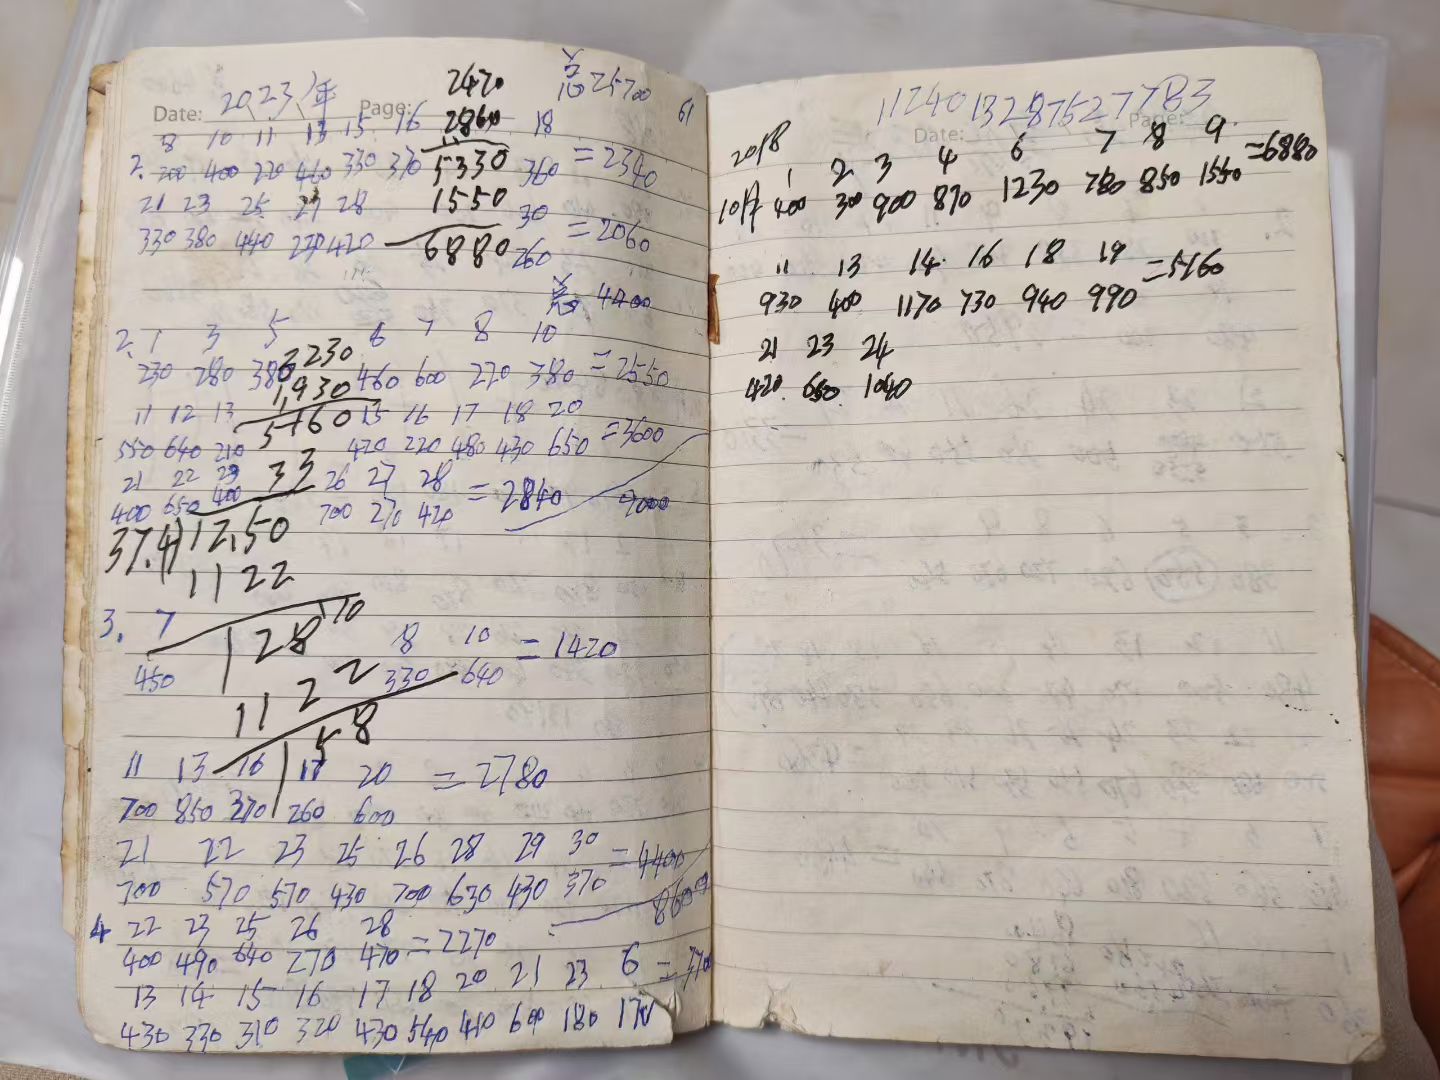 Date: 2023年 Page: 2420 总25700 61
8 10 11 13 15 16 2860 18
2. 200 400 220 460 330 370 5330 360 =2340
21 23 25 27 28 1550 30
330 380 440 220 420 6880 260 =2060
总 4400
2. 1 3 5 6 7 8 10
3230
230 280 380 460 600 220 380 =2550
1930
11 12 13 5160 15 16 17 18 20
550 640 210 420 220 480 430 650 =3600
21 22 23 33 26 27 28 =2840
400 650 400 700 270 420 9000
37.4 1250
1122
3. 7 1280 8 10 =1420
450 330 640
1122
158
11 13 16 17 20 =2780
700 850 370 260 600
21 22 23 25 26 28 29 30 =4400
700 570 570 430 700 630 430 370
8600
4 22 23 25 26 28
400 490 640 270 470 =2270
13 14 15 16 17 18 20 21 23 6
430 330 310 320 430 540 410 600 180 170
1124013287527783
Date: Page:
2018 1 2 3 4 6 7 8 9 =6880
10月 400 300 900 870 1230 780 850 1550
11 13 14 16 18 19 =5160
930 400 1170 730 940 990
21 23 24
420 650 1040